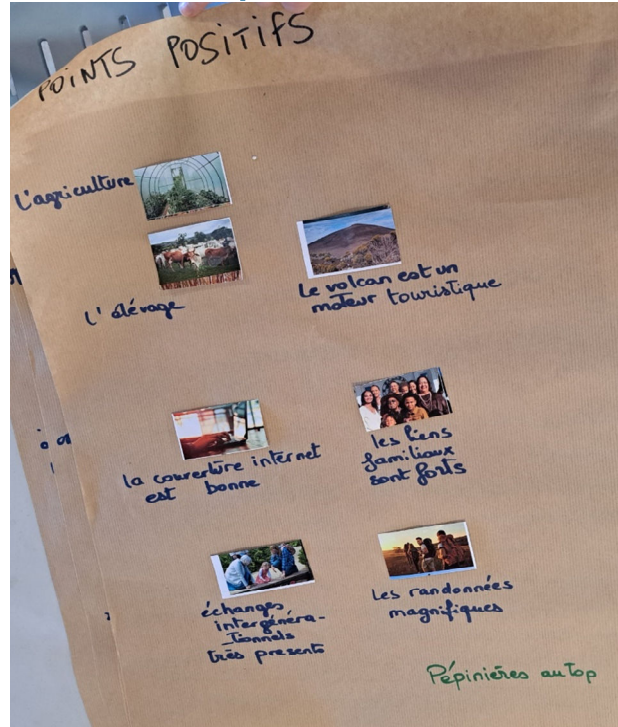 POINTS POSITIFS
L'agriculture
L'élévage
Le volcan est un
moteur touristique
la couverture internet
est bonne
les liens
familiaux
sont forts
échanges
intergénéra-
-tionnels
très presents
Les randonnées
magnifiques
Pépinières au top